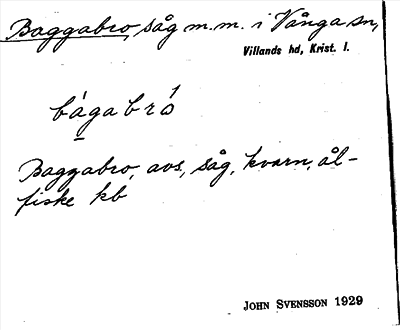 Baggabro, såg m.m. i Vånga sn,
Villands hd, Krist. l.
bágabró
Baggabro, avs, såg, kvarn, ål-
fiske kb
JOHN SVENSSON 1929